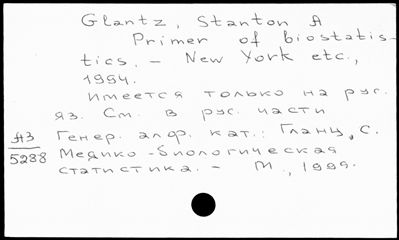 Glantz, Stanton A
Primer of biostatis-
tics. - New York etc.,
1994.
Имеется только на рус.
яз. См. в рус. части
Генер. алф. кат.: Гланц, С.
Медико-биологическая
статистика. - М., 1999.
А3
5288